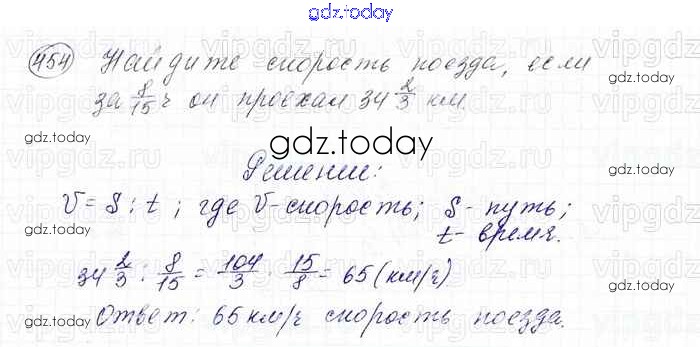 gdz.today
454 Найдите скорость поезда, если
за 8/15 ч он проехал 34 2/3 км.
gdz.today
gdz.today
gdz.today
Решение:
V = S : t ; где V - скорость; S - путь;
t - время.
gdz.today
gdz.today
34 2/3 : 8/15 = 104/3 · 15/8 = 65 (км/ч)
Ответ: 65 км/ч скорость поезда.
gdz.today
gdz.today
gdz.today